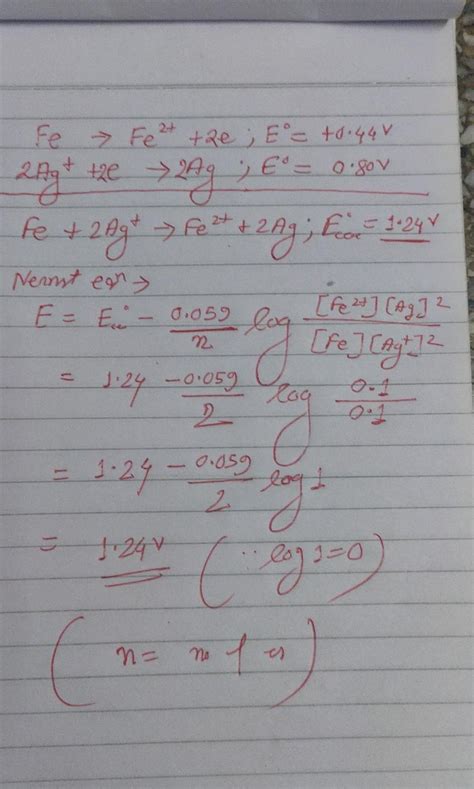 Fe → Fe²⁺ + 2e ; E° = +0.44V
2Ag⁺ + 2e → 2Ag ; E° = 0.80V
Fe + 2Ag⁺ → Fe²⁺ + 2Ag ; E°cell = 1.24V
Nernst eqn →
E = E°cell - 0.059/n log [Fe²⁺][Ag]²/[Fe][Ag⁺]²
= 1.24 - 0.059/2 log 0.1/0.1
= 1.24 - 0.059/2 log 1
= 1.24V (∵ log 1 = 0)
(n = no of es)